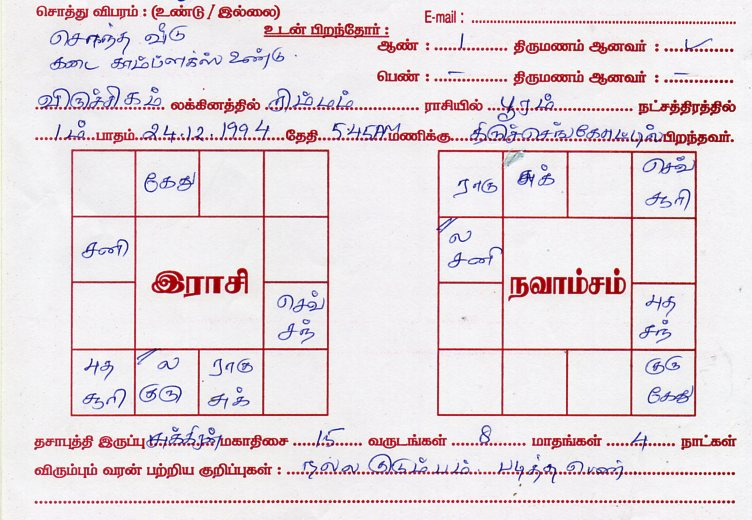 சொத்து விபரம் : (உண்டு / இல்லை)
E-mail :
சொந்த வீடு
உடன் பிறந்தோர் :
ஆண் : 1 திருமணம் ஆனவர் : ✓
கடை காம்ப்ளக்ஸ் உண்டு.
பெண் : – திருமணம் ஆனவர் : –
விருச்சிகம் லக்கினத்தில் சிம்மம் ராசியில் பூரம் நட்சத்திரத்தில்
1ம் பாதம் 24.12.1994 தேதி 5.45AM மணிக்கு திருச்செங்கோட்டில் பிறந்தவர்.
கேது
சனி
இராசி
செவ்
சந்
புத ல ராகு
சூரி குரு சுக்
ராகு சுக் செவ்
சூரி
ல
சனி
நவாம்சம்
புத
சந்
குரு
கேது
தசாபுத்தி இருப்பு சுக்கிரன் மகாதிசை 15 வருடங்கள் 8 மாதங்கள் 4 நாட்கள்
விரும்பும் வரன் பற்றிய குறிப்புகள் : நல்ல குடும்பம் படித்த பெண்